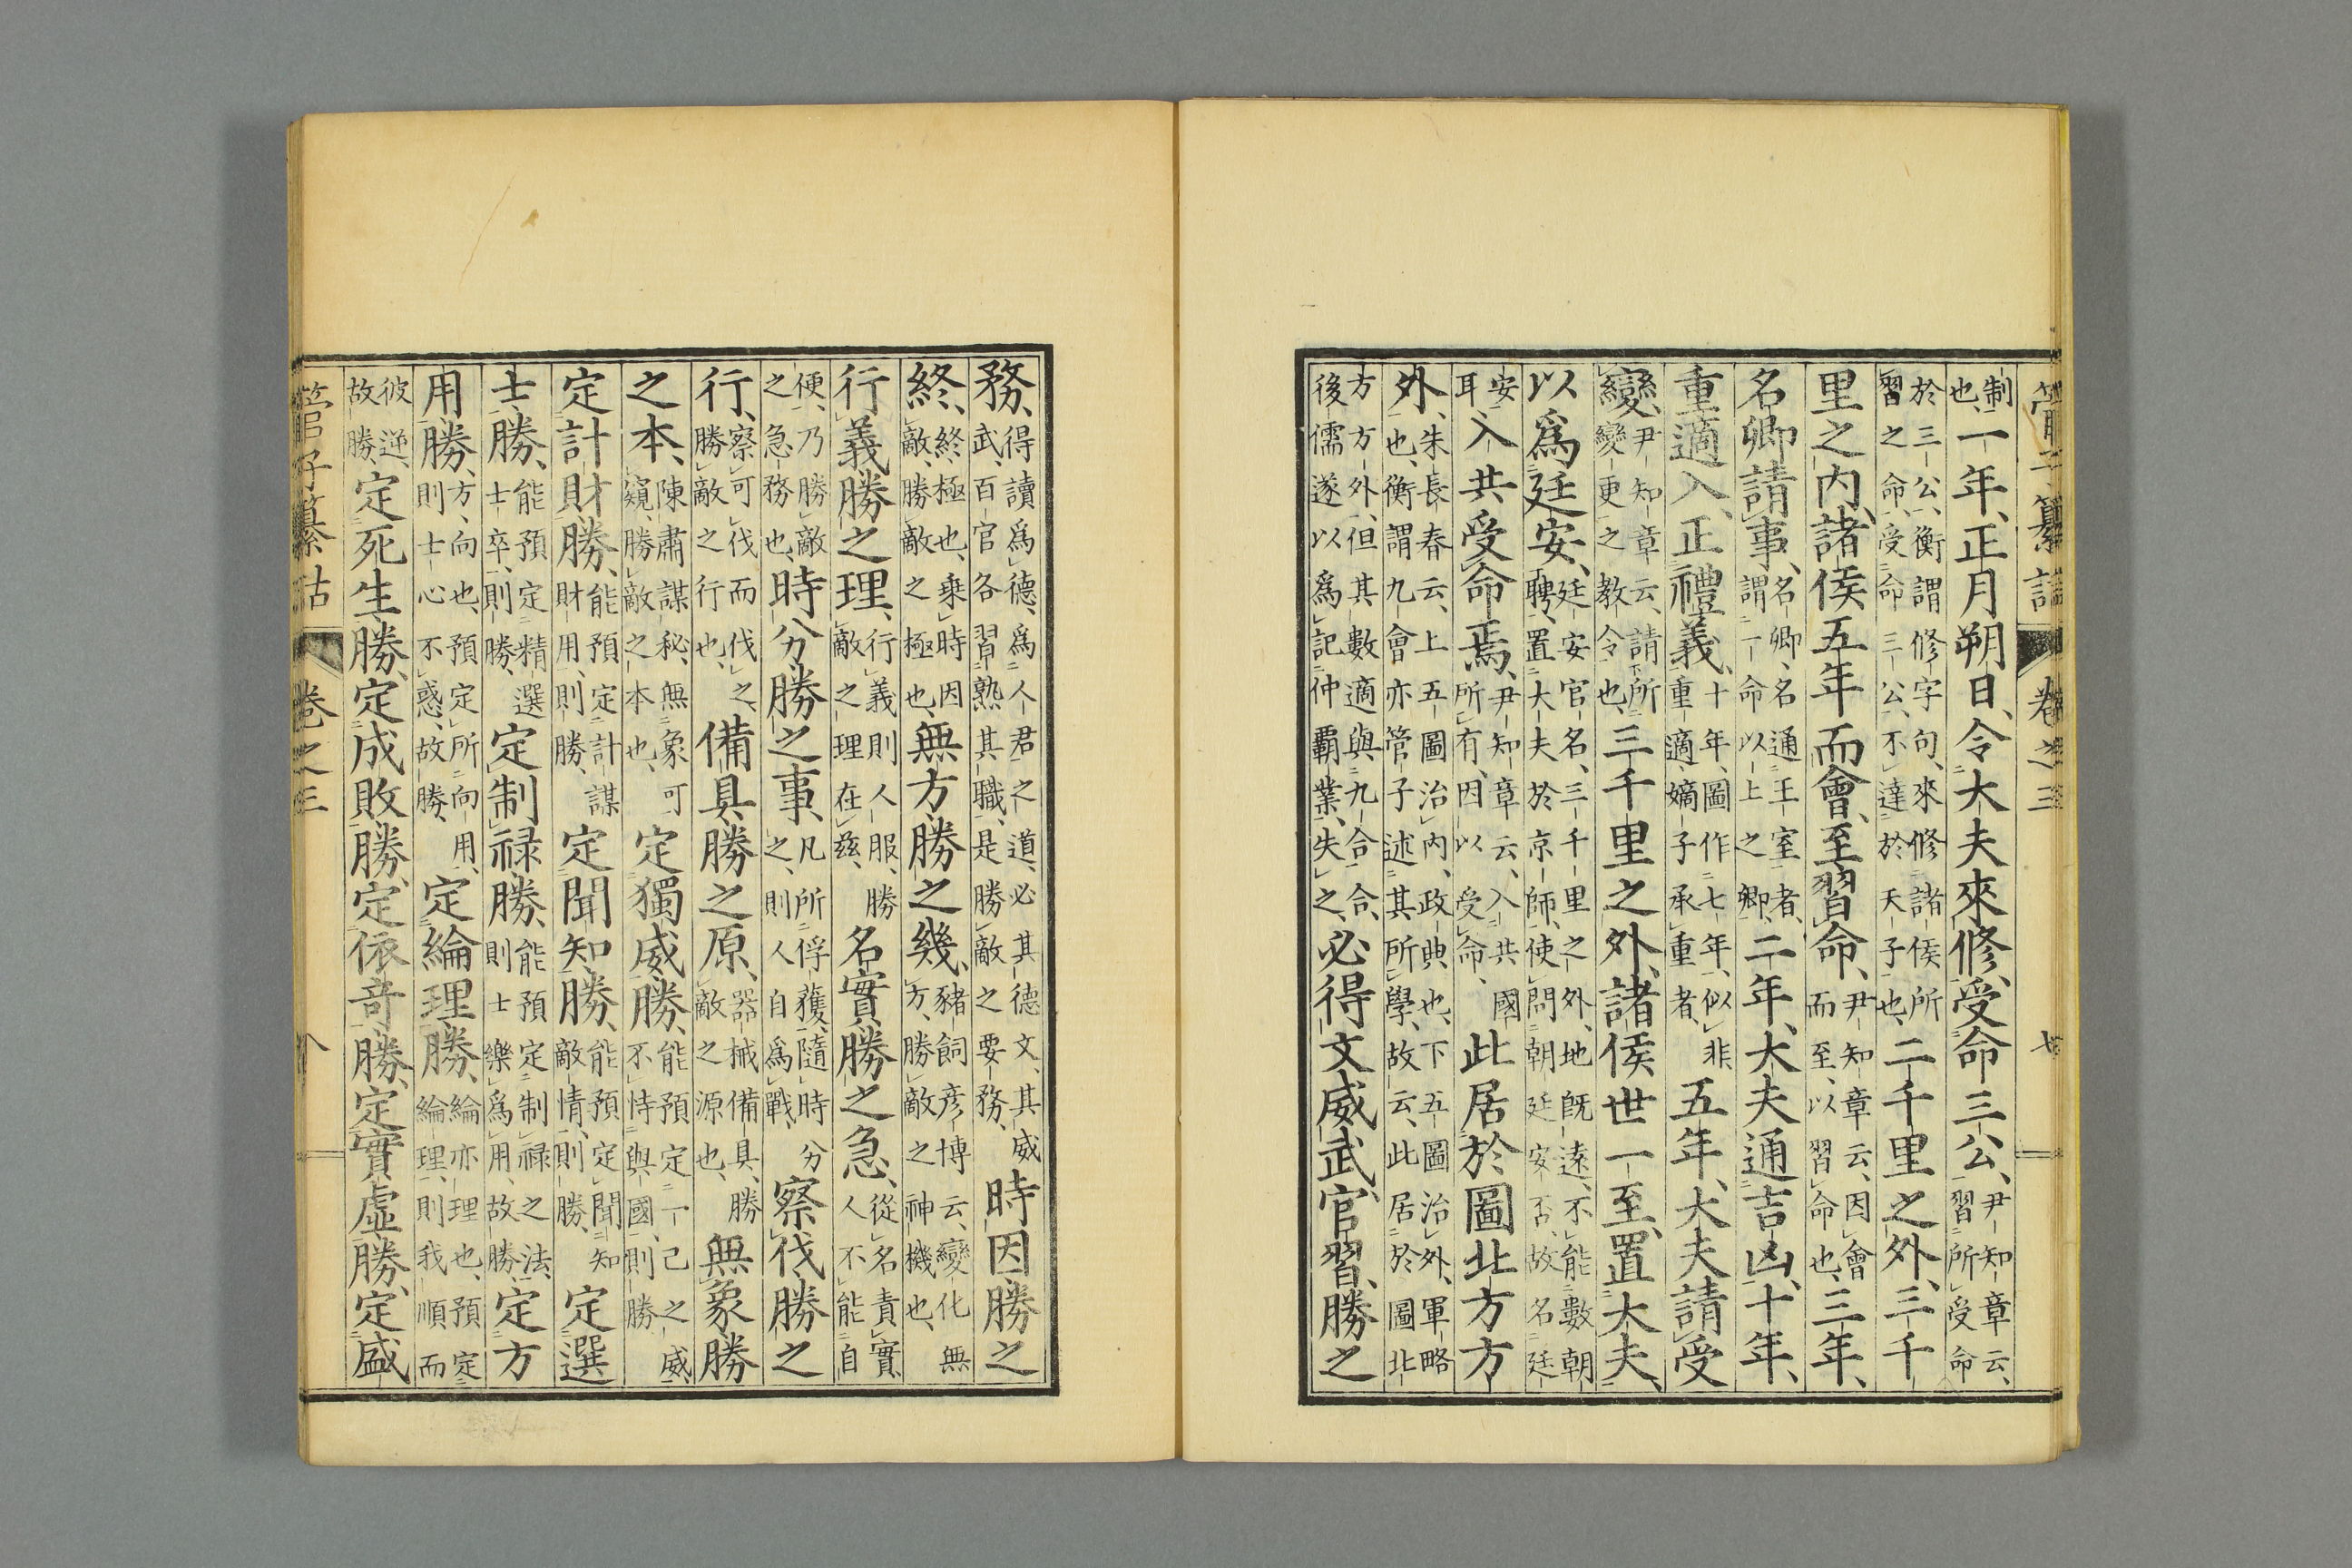 管子纂詁 卷之三 七
制也、一年、正月朔日、令大夫來修、受命三公、尹知章云、習所受命
於三公、衡謂修字句、來修諸侯所習之命、受命三公、不達於天子也、二千里之外、三千
里之内、諸侯五年而會、至習命、尹知章云、因會而至、以習命也、三年、
名卿請事、名卿、名通王室者、謂一命以上之卿、二年、大夫通吉凶、十年、
重適入、正禮義、十年、圖作七年、似非重適、嫡子承重者、五年、大夫請受
變、尹知章云、請所變更之教令也、三千里之外、諸侯世一至、置大夫、
以爲廷安、廷安官名、三千里之外、地既遠、不能數朝聘、置大夫於京師、使問朝廷安否、故名廷
安耳、入共受命焉、尹知章云、入共國所有、因以受命、此居於圖北方方
外、朱長春云、上五圖治内、政典也、下五圖治外、軍略也、衡謂九會亦管子述其所學、故云、此居於圖北
方方外、但其數適與九合一合、後儒遂以爲記仲霸業、失之、必得文威武、官習、勝之
務、得讀爲德、爲人君之道、必其德文、其威武、百官各習熟其職、是勝敵之要務、時因、勝之
終、終、極也、乘時因敵、勝敵之極也、無方、勝之幾、豬飼彥博云、變化無方、勝敵之神機也、
行義勝之理、行義則人服、勝敵之理在茲、名實勝之急、從名責實、人不能自
便、乃勝敵之急務也、時分、勝之事、凡所俘獲、隨時分之、則人自爲戰、察伐勝之
行、察可伐而伐之、勝敵之行也、備具、勝之原、器械備具、勝敵之源也、無象勝
之本、陳肅謀秘、無象可窺、勝敵之本也、定獨威勝、能預定一己之威、不恃與國、則勝
定計財勝、能預定計謀財用、則勝、定聞知勝、能預定聞知敵情、則勝、定選
士勝、能預定精選士卒、則勝、定制禄勝、能預定制禄之法、則士樂爲用、故勝、定方
用勝、方、向也、預定所向用、則士心不惑、故勝、定綸理勝、綸亦理也、預定綸理、則我順而
彼逆、故勝、定死生勝、定成敗勝、定依奇勝、定實虛勝、定盛
管子纂詁 卷之三 八